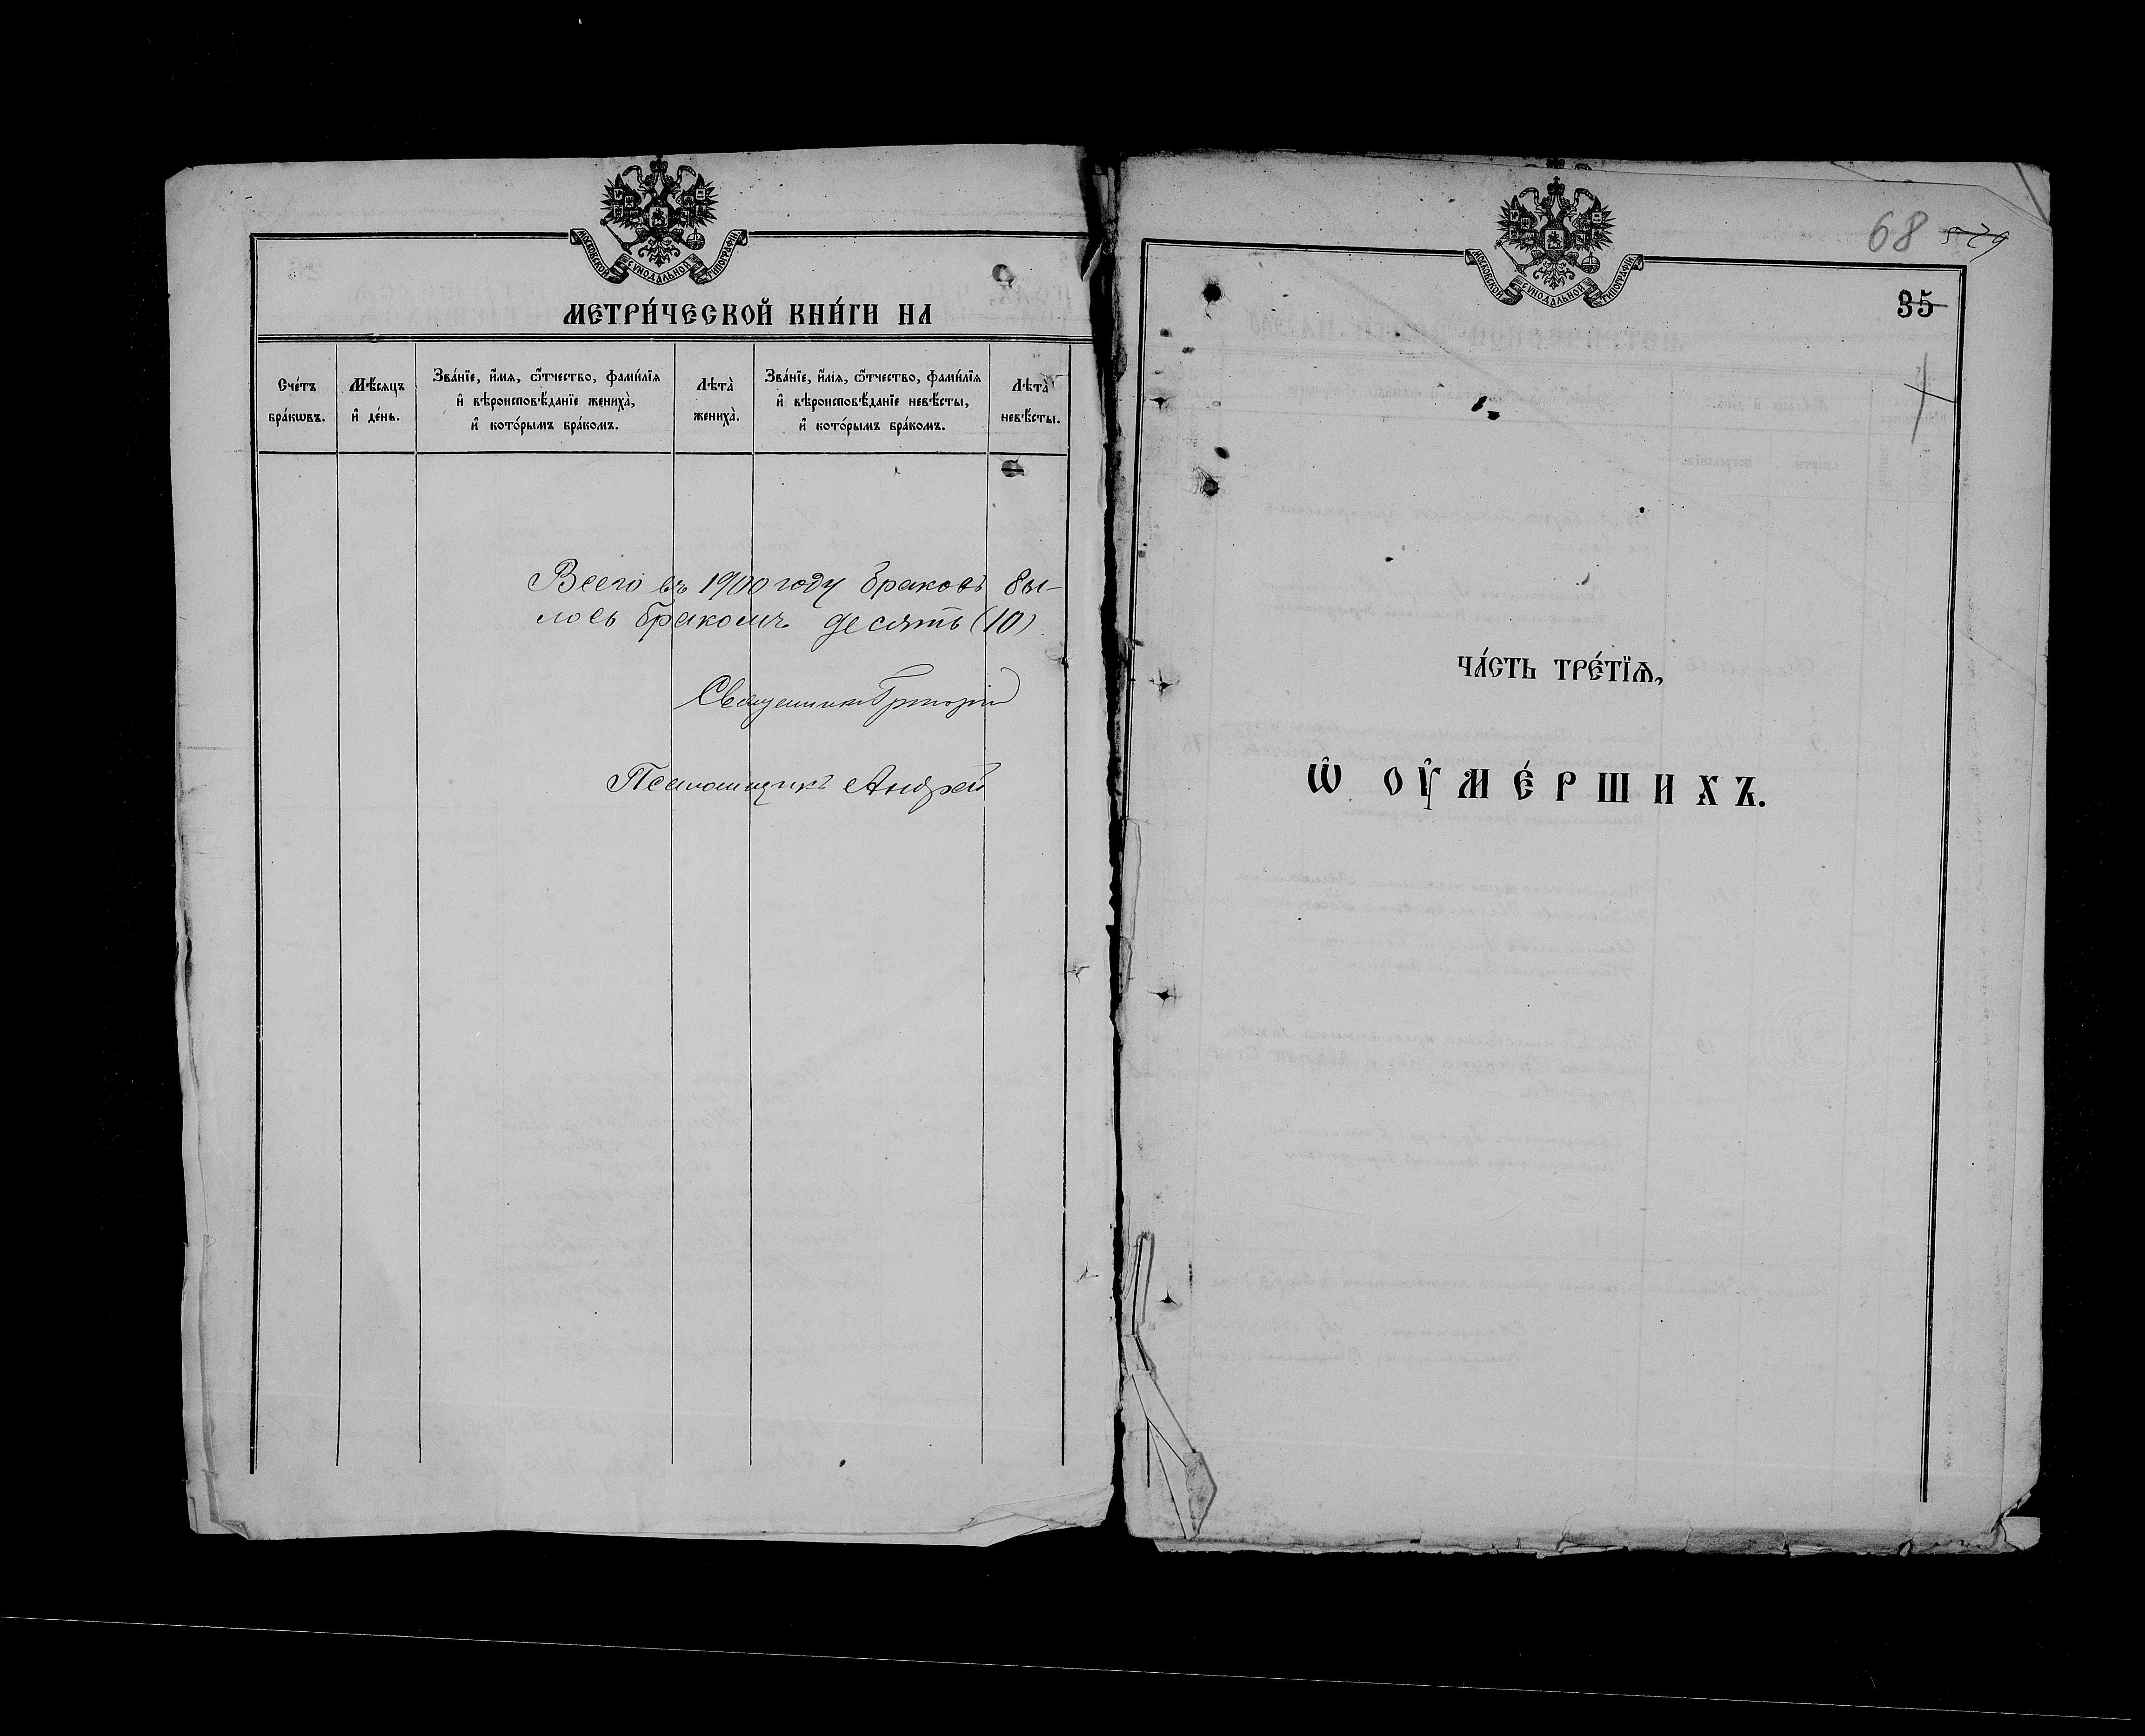 МОСКОВСКОЙ СѴНОДАЛЬНОЙ ТИПОГРАФІИ
МЕТРИ́ЧЕСКОЙ КНИ́ГИ НА
Сче́тъ бра́кѡвъ.
Мѣ́сяцъ и҆ де́нь.
Зва́нїе, и҆́мя, ѻ҆́тчество, фами́лїя
и҆ вѣроисповѣ́данїе жениха̀,
и҆ кото́рымъ бра́комъ.
Лѣта̀ жениха̀.
Зва́нїе, и҆́мя, ѻ҆́тчество, фами́лїя
и҆ вѣроисповѣ́данїе невѣ́сты,
и҆ кото́рымъ бра́комъ.
Лѣта̀ невѣ́сты.
Всего въ 1900 году браковъ
бракомъ десять (10)
Священникъ Григорій
Псаломщикъ Андрей
МОСКОВСКОЙ СѴНОДАЛЬНОЙ ТИПОГРАФІИ
68
35
ЧА́СТЬ ТРЕ́ТЇѦ,
Ѡ҆ ОУ҆МЕ́РШИХЪ.